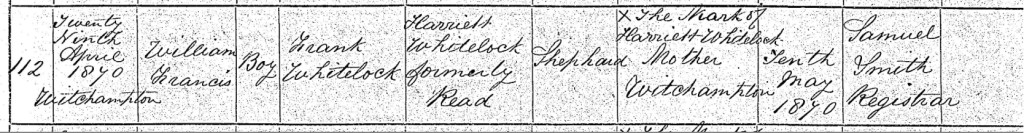 112
Twenty
Ninth
April
1870
Witchampton
William
Francis
Boy
Frank
Whitelock
Harriett
Whitelock
formerly
Read
Shephard
X The Mark of
Harriett Whitelock
Mother
Witchampton
Tenth
May
1870
Samuel
Smith
Registrar